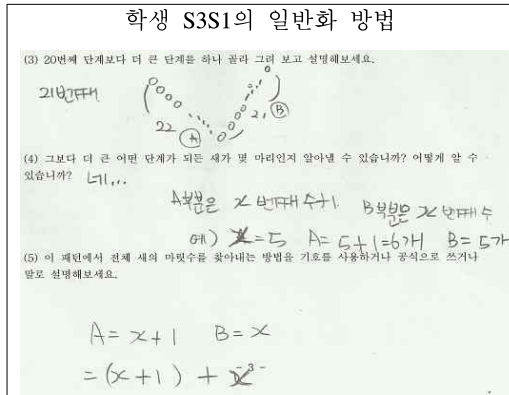 학생 S3S1의 일반화 방법
(3) 20번째 단계보다 더 큰 단계를 하나 골라 그려 보고 설명해보세요.
21번째
22 A 21 B
(4) 그보다 더 큰 어떤 단계가 되든 새가 몇 마리인지 알아낼 수 있습니까? 어떻게 알 수
있습니까? 네...
A부분은 x 번째 수+1. B부분은 x 번째 수
예) x=5 A=5+1=6개 B=5개
(5) 이 패턴에서 전체 새의 마릿수를 찾아내는 방법을 기호를 사용하거나 공식으로 쓰거나
말로 설명해보세요.
A=x+1 B=x
=(x+1)+x
- 3 -